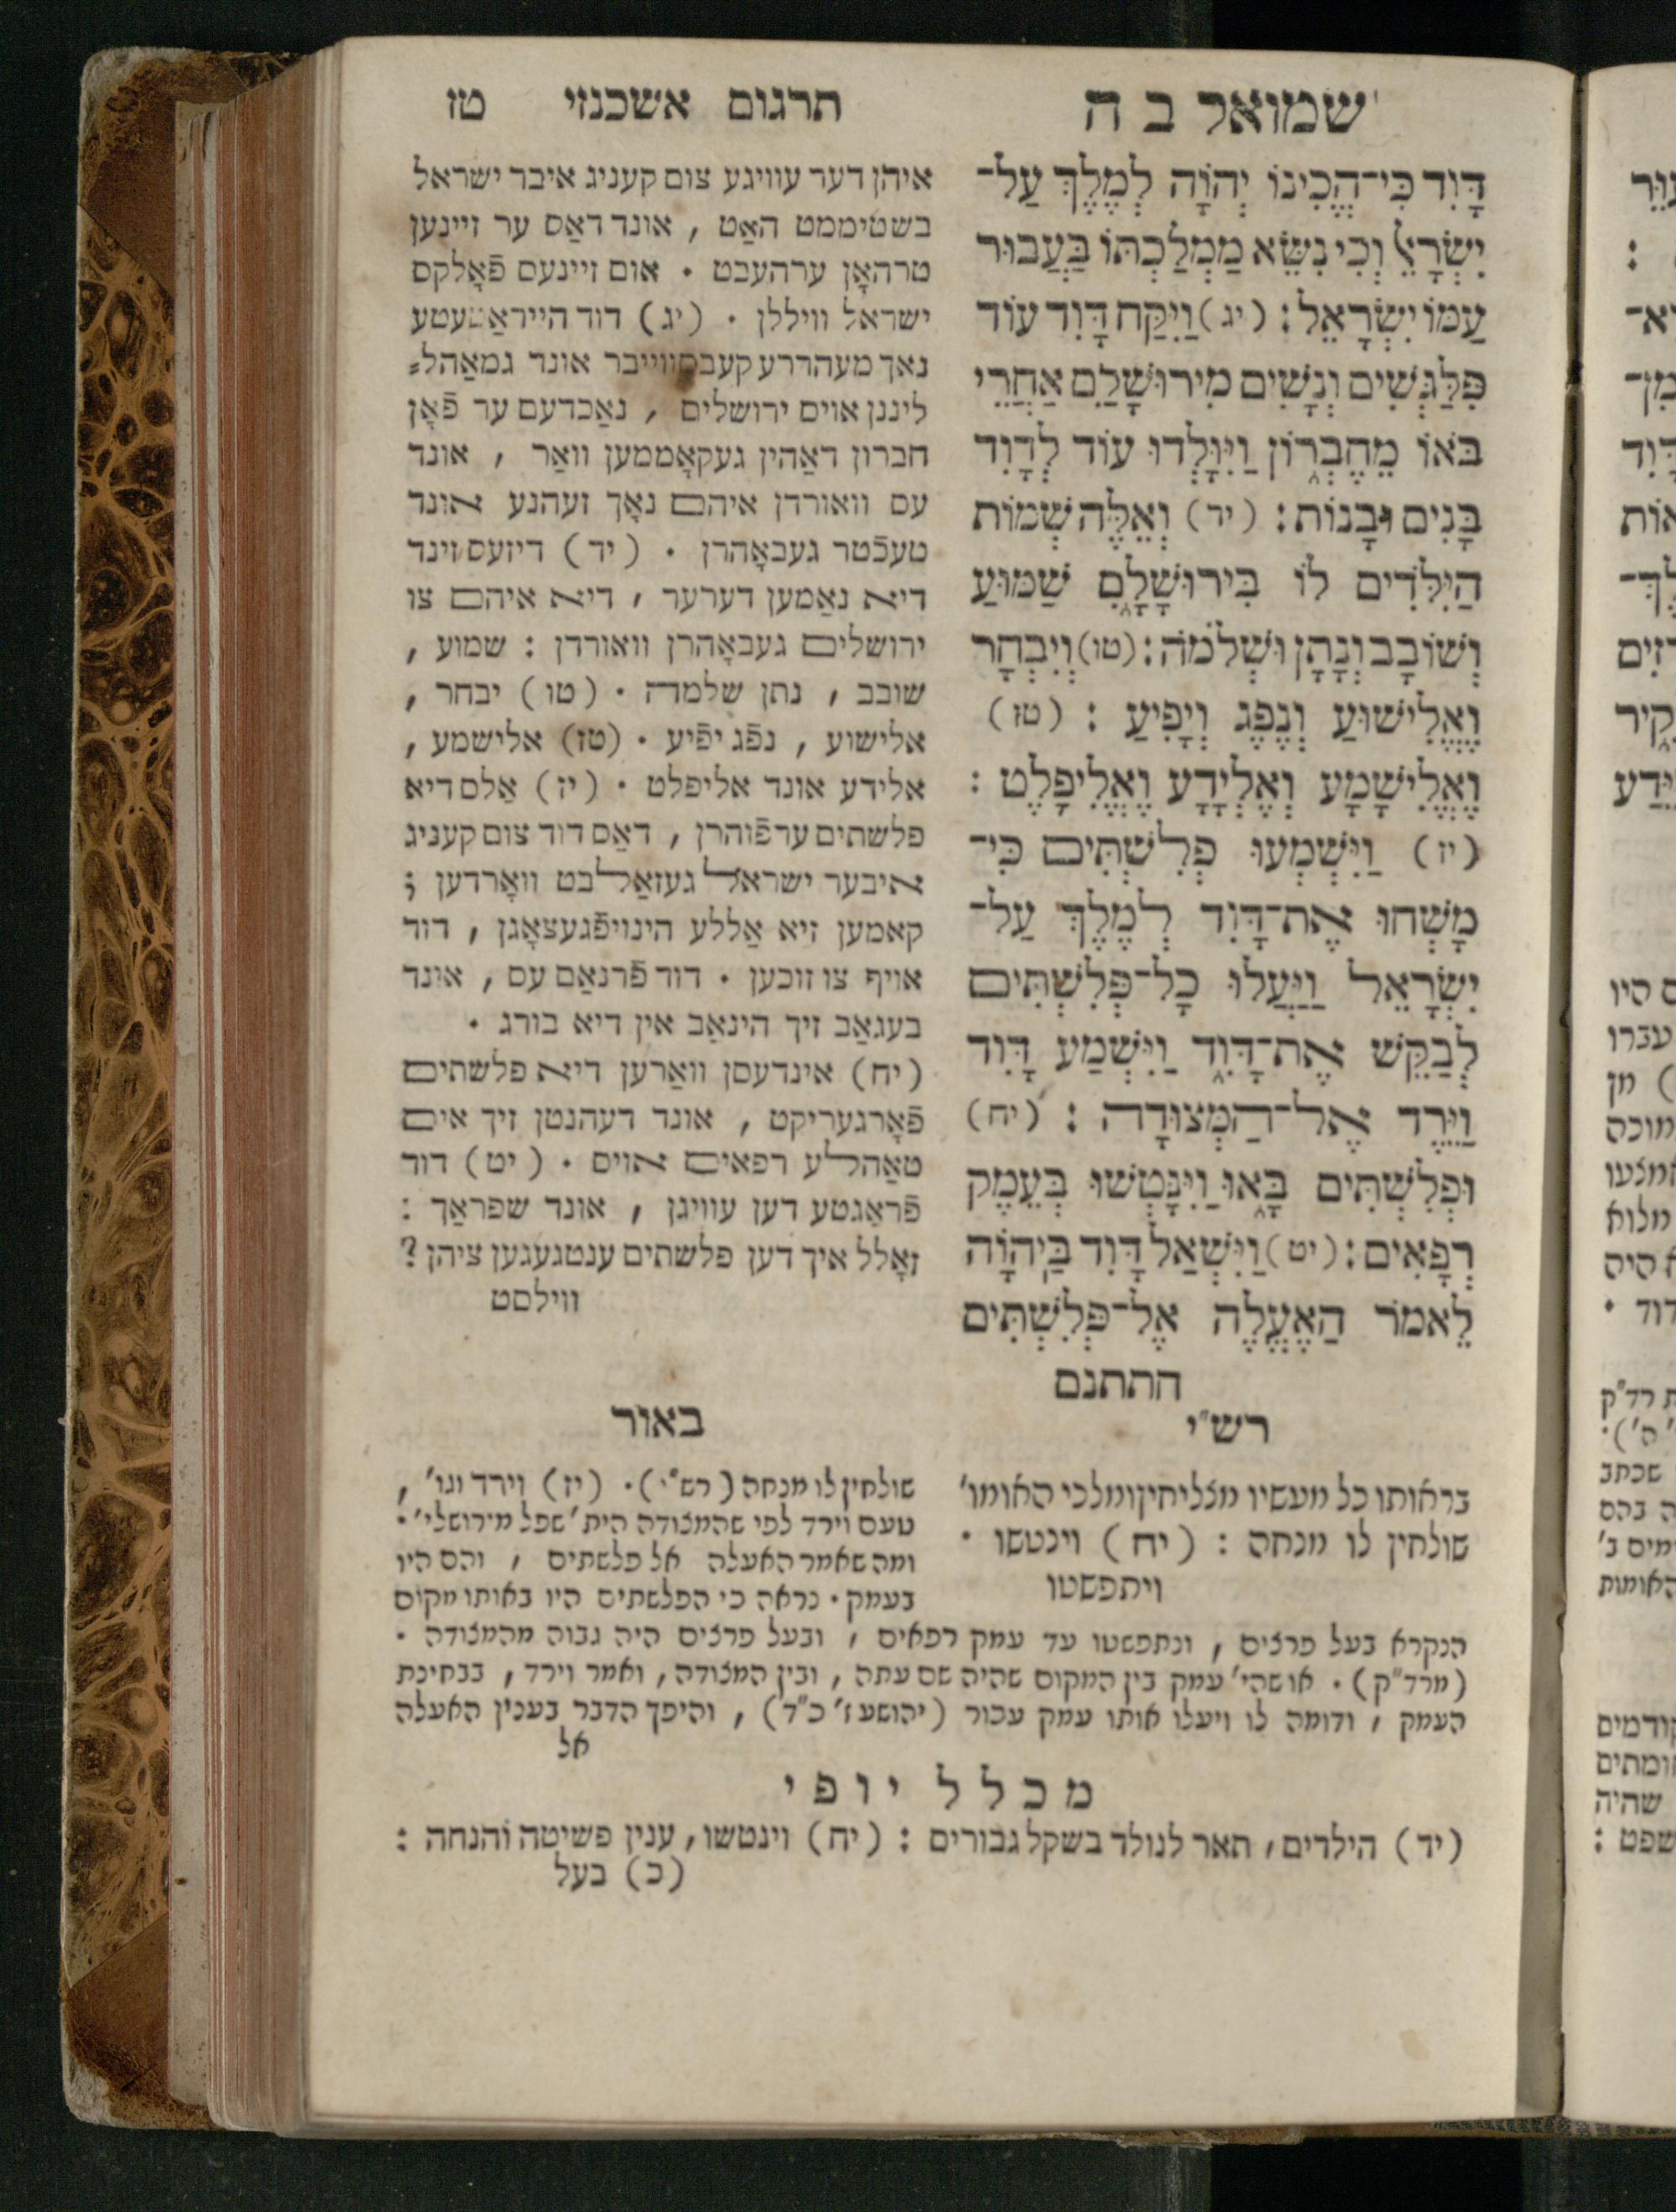 שמואל ב ה
דָּוִד כִּי־הֱכִינוֹ יְהוָֹה לְמֶלֶךְ עַל־
יִשְׂרָאֵל וְכִי נִשֵּׂא מַמְלַכְתּוֹ בַּעֲבוּר
עַמּוֹ יִשְׂרָאֵל : (יג) וַיִּקַּח דָּוִד עוֹד
פִּלַגְשִׁים וְנָשִׁים מִירוּשָׁלַםִ אַחֲרֵי
בֹּאוֹ מֵחֶבְרוֹן וַיִּוָּלְדוּ עוֹד לְדָוִד
בָּנִים וּבָנוֹת : (יד) וְאֵלֶּה שְׁמוֹת
הַיִּלֹּדִים לוֹ בִּירוּשָׁלָםִ שַׁמּוּעַ
וְשׁוֹבָב וְנָתָן וּשְׁלֹמֹה : (טו) וְיִבְחָר
וֶאֱלִישׁוּעַ וְנֶפֶג וְיָפִיעַ : (טז)
וֶאֱלִישָׁמָע וְאֶלְיָדָע וֶאֱלִיפָלֶט :
(יז) וַיִּשְׁמְעוּ פְלִשְׁתִּים כִּי־
מָשְׁחוּ אֶת־דָּוִד לְמֶלֶךְ עַל־
יִשְׂרָאֵל וַיַּעֲלוּ כָל־פְּלִשְׁתִּים
לְבַקֵּשׁ אֶת־דָּוִד וַיִּשְׁמַע דָּוִד
וַיֵּרֶד אֶל־הַמְּצוּדָה : (יח)
וּפְלִשְׁתִּים בָּאוּ וַיִּנָּטְשׁוּ בְּעֵמֶק
רְפָאִים : (יט) וַיִּשְׁאַל דָּוִד בַּיהוָֹה
לֵאמֹר הַאֶעֱלֶה אֶל־פְּלִשְׁתִּים
התתנם
תרגום אשכנזי טז
איהן דער עוויגע צום קעניג איבר ישראל
בשטיממט האַט , אונד דאַס ער זיינען
טרהאָן ערהעבט . אום זיינעס פֿאָלקס
ישראל ווילל̇ן . (יג) דוד הייראַטעטע
נאך מעהררע קעבסווייבר אונד גמאַהל=
ליננן אויס ירושלים , נאַכדעם ער פֿאָן
חברון דאַהין געקאָממען וואַר , אונד
עס וואורדן איהם נאָך זעהנע אונד
טעכֿטר געבאָהרן . (יד) דיזעס זינד
דיא נאַמען דערער , דיא איהם צו
ירושלים געבאָהרן וואורדן : שמוע ,
שובב , נתן שלמה . (טו) יבחר ,
אלישוע , נפֿג יפֿיע . (טז) אלישמע ,
אלידע אונד אליפלט . (יז) אַלס דיא
פלשתים ערפֿוהרן , דאַס דוד צום קעניג
איבער ישראל געזאַלבט וואָרדען ;
קאמען זיא אַללע הינויפֿגעצאָגן , דוד
אויף צו זוכען . דוד פֿרנאַם עס , אונד
בעגאַב זיך הינאַב אין דיא בורג .
(יח) אינדעסן וואַרען דיא פלשתים
פֿאָרגעריקט , אונד דעהנטן זיך אים
טאַהלע רפאים אויס . (יט) דוד
פֿראַגטע דען עוויגן , אונד שפראַך :
זאָלל איך דען פלשתים ענטגעגען ציהן ?
ווילסט
רש"י
בראותו כל מעשיו מצליחין ומלכי האומו'
שולחין לו מנחה : (יח) וינטשו .
ויתפשטו
באור
שולחין לו מנחה (רש"י) . (יז) וירד וגו' ,
טעם וירד לפי שהמצודה הית' שפל מירושלי' .
ומה שאמר האעלה אל פלשתים , והם היו
בעמק . נראה כי הפלשתים היו באותו מקום
הנקרא בעל פרצים , ונתפשטו עד עמק רפאים , ובעל פרצים היה גבוה מהמצודה .
(מרד"ק) . או שהי' עמק בין המקום שהיה שם עתה , ובין המצודה , ואמר וירד , בבחינת
העמק , ודומה לו ויעלו אותו עמק עכור (יהושע ז' כ"ד) , והיפך הדבר בענין האעלה
אל
מכלל יופי
(יד) הילדים , תאר לנולד בשקל גבורים : (יח) וינטשו , ענין פשיטה והנחה :
(כ) בעל